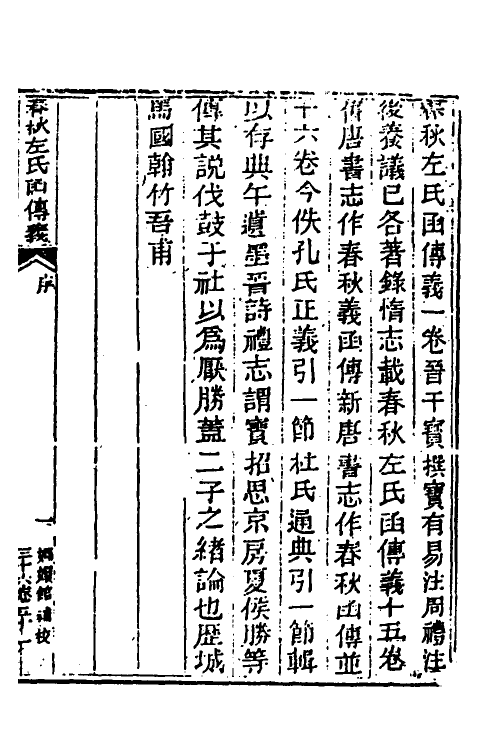 春秋左氏函傳義一卷晉干寶撰寶有易注周禮注
後養議已各著錄惰志載春秋左氏函傳義十五卷
舊唐書志作春秋義函傳新唐書志作春秋函傳並
十六卷今佚孔氏正義引一節杜氏通典引一節輯
以存典午遺墨晉詩禮志謂寶招思京房夏侯勝等
傳其說伐鼓于社以爲厭勝蓋二子之緒論也歷城
馬國翰竹吾甫
春秋左氏函傳義
序
一
嫏嬛館補校